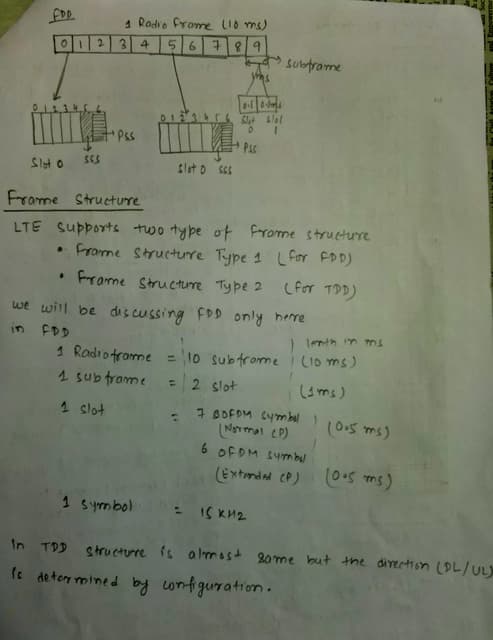 FDD
1 Radio Frame (10 ms)
0 1 2 3 4 5 6 7 8 9
subframe
1ms
0 1 2 3 4 5 6
0 1 2 3 4 5 6
0.5 0.5ms
slot slot
0 1
PSS
PSS
slot 0 SSS
slot 0 SSS
Frame Structure
LTE supports two type of Frame structure
• Frame Structure Type 1 (for FDD)
• Frame Structure Type 2 (for TDD)
we will be discussing FDD only here
in FDD
lenth in ms
1 Radioframe = 10 subframe (10 ms)
1 subframe = 2 slot (1ms)
1 slot = 7 OFDM symbol
(Normal CP) (0.5 ms)
6 OFDM symbol
(Extended CP) (0.5 ms)
1 symbol = 15 KHz
In TDD structure is almost same but the direction (DL/UL)
is determined by configuration.